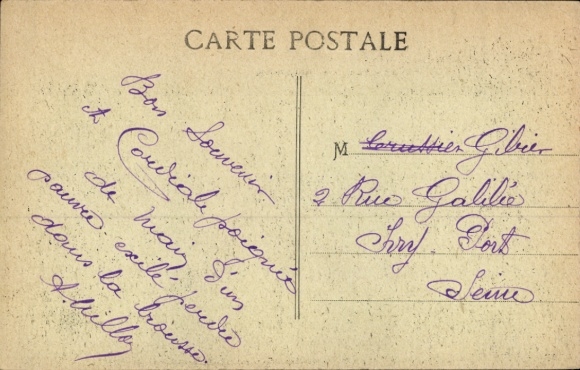 CARTE POSTALE
Bon Souvenir
et
Cordiale poignée
de main d'un
pauvre exilé perdu
dans la brousse.
M Gibier
2 Rue Galilée
Ivry Port
Seine